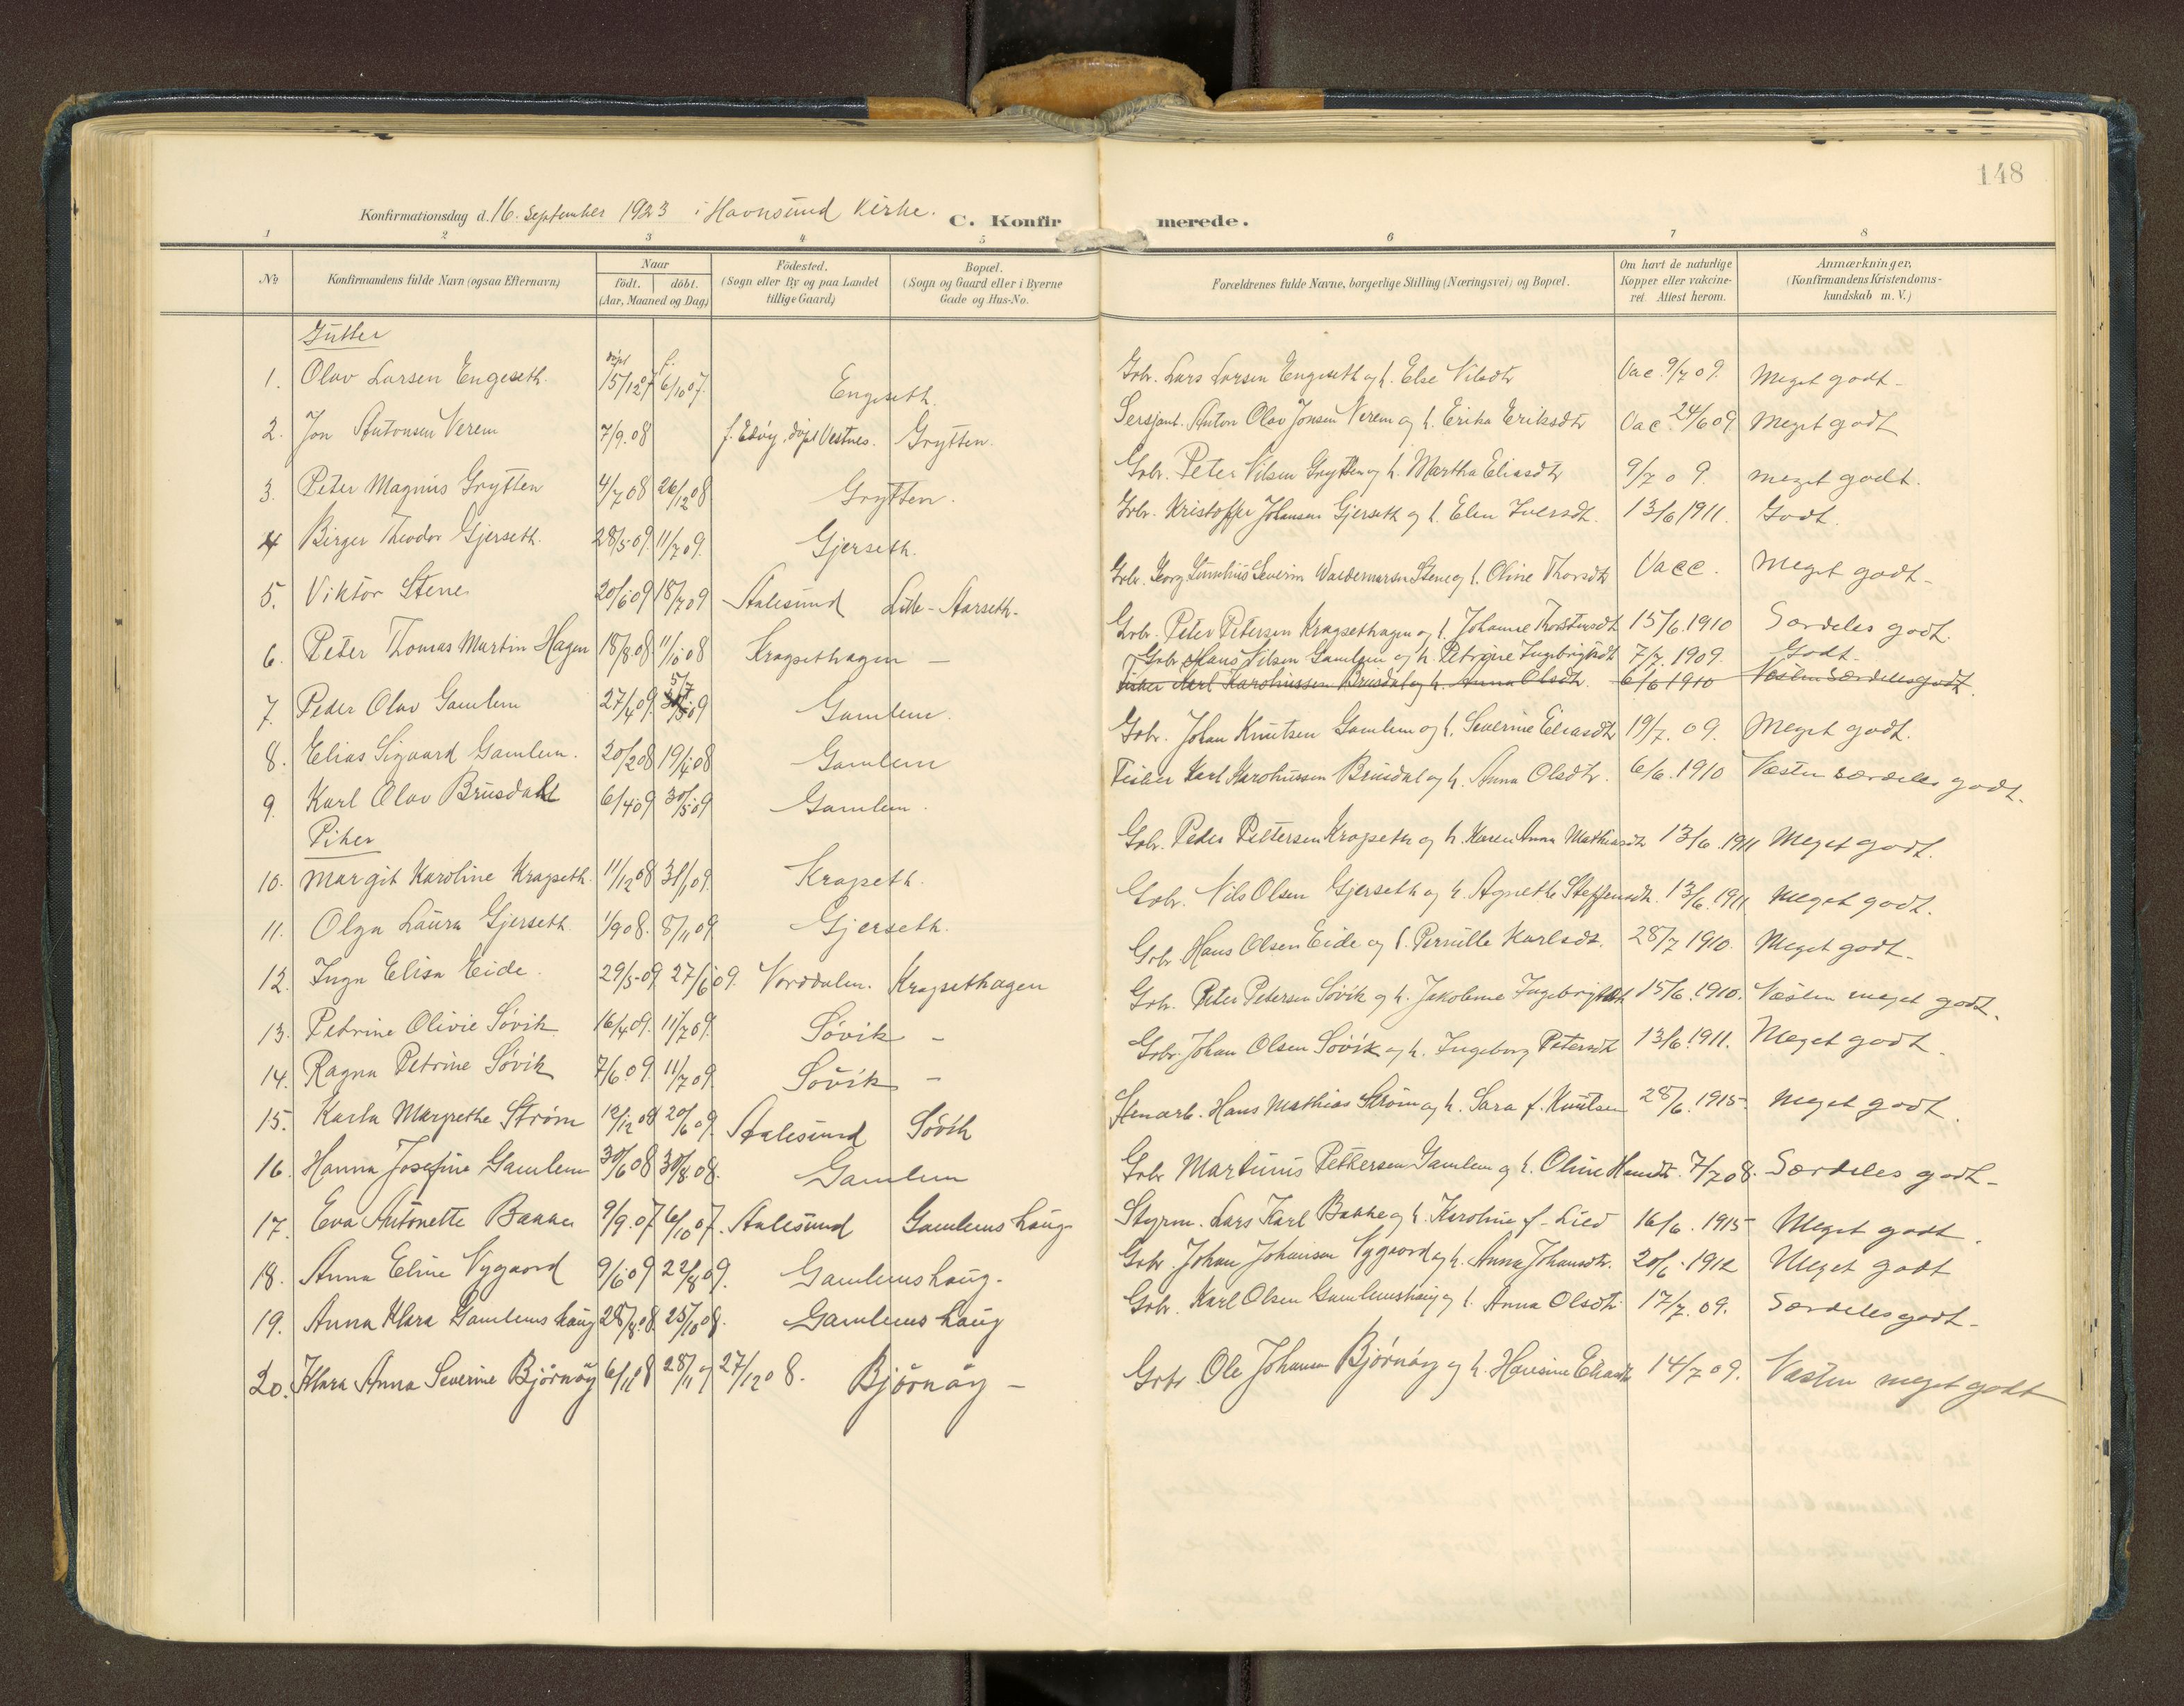 148
Konfirmationsdag d. 16. September 1923 i Havnsund Kirke.
C. Konfirmerede.
1 2 3 4 5 6 7 8
No
Konfirmandens fulde Navn (ogsaa Efternavn)
Naar
födt. döbt.
(Aar, Maaned og Dag)
Födested.
(Sogn eller By og paa Landet
tillige Gaard)
Bopæl.
(Sogn og Gaard eller i Byerne
Gade og Hus-No.
Forældrenes fulde Navne, borgerlige Stilling (Næringsvei) og Bopæl.
Om havt de naturlige
Kopper eller vakcine-
ret Attest herom.
Anmærkninger,
(Konfirmandens Kristendoms-
kundskab m. V.)
Gutter
døpt f.
1. Olav Larsen Engeseth. 15/12 07 6/10 07. Engeseth. Gbr. Lars Larsen Engeseth og h. Else Nilsdtr Vac. 9/7 09. Meget godt.
2. Jon Antonsen Verem 7/9.08 f. Edøy, døpt Vestnes. Grytten. Sersjant. Anton Olav Jonsen Verem og h. Erika Eriksdtr Vac 24/6 09 Meget godt
3. Peter Magnus Grytten 4/7 08 26/12 08 Grytten. Gbr. Peter Nilsen Grytten og h. Martha Eliasdtr 9/7 09. meget godt.
4 Birger Theodor Gjerseth. 28/5 09. 11/7 09. Gjerseth. Gbr. Kristoffer Johansen Gjerseth og h. Elen Iversdt. 13/6 1911. Godt.
5. Viktor Stene 20/6 09 18/7 09 Aalesund Lille-Aarseth. Gbr. Georg Severin Waldemarsen Stene og h. Oline Thorsdtr Vacc. Meget godt.
6. Peter Thomas Martin Hagen 18/8 08. 11/10 08 Kragsethagen – Gbr. Peter Petersen Kragsethagen og h. Johanne Thorstensdt 15/6.1910 Særdeles godt.
7. Peder Olav Gamlem 27/4 09. 5/7 09 Gamlem. Gbr. Hans Nilsen Gamlem og h. Petrine Ingebrigtsdt 7/7. 1909. Godt.
Fisker Karl Karolinussen Brusdal og h. Anna Olsdtr. 6/6 1910 Næsten særdeles godt
8. Elias Sigvard Gamlem. 20/2 08 19/4 08 Gamlem Gbr. Johan Knutsen Gamlem og h. Severine Eliasdtr 19/7. 09. Meget godt.
9. Karl Olav Brusdahl 6/4 09 30/5 09 Gamlem. Fisker Karl Karolinussen Brusdal og h. Anna Olsdtr. 6/6. 1910 Næsten særdeles godt.
Piker
10. Margit Karoline Kragseth. 11/12 08 31/1 09. Kragseth. Gbr. Peder Pettersen Kragseth og h. Karen Anna Mathiasdtr 13/6.1911 Meget godt.
11. Olga Laura Gjerseth. 1/9 08. 8/11 09 Gjerseth. Gbr. Nils Olsen Gjerseth og h. Agnethe Steffensdt. 13/6.1911 Meget godt.
12. Inga Elisa Eide. 29/5-09 27/6 09. Norddalen. Kragsethagen Gbr. Hans Olsen Eide og h. Pernille Karlsdt. 28/7 1910. Meget godt.
13. Petrine Olivie Søvik 16/4 09. 11/7 09. Søvik – Gbr. Peter Petersen Søvik og h. Jakobine Ingebrigtsdt 15/6.1910. Næsten meget godt.
14. Ragna Petrine Søvik 7/6 09. 11/7 09. Søvik – Gbr. Johan Olsen Søvik og h. Ingeborg Petersdt 13/6.1911. Meget godt.
15. Karla Margrethe Strøm 12/12 08 20/6 09. Aalesund Søvik Stenarb. Hans Mathias Strøm og h. Sara f. Knutsen 28/6.1915. Meget godt.
16. Hanna Josefine Gamlem 30/6 08 30/8.08. Gamlem Gbr Martinus Pettersen Gamlem og h. Oline Hansdt. 7/7 08. Særdeles godt.
17. Eva Antonette Bakke 9/9.07 6/10 07. Aalesund Gamlemshaug Styrm. Lars Karl Bakke og h. Karoline f. Lied 16/6. 1915 Meget godt.
18. Anna Eline Nygaard 9/6 09 22/8 09. Gamlemshaug. Gbr. Johan Johansen Nygaard og h. Anna Johansdtr. 20/6.1912 Meget godt
19. Anna Klara Gamlemshaug 28/8.08. 25/10 08. Gamlemshaug Gbr. Karl Olsen Gamlemshaug og h. Anna Olsdtr 17/7. 09. Særdeles godt.
20. Klara Anna Severine Bjørnøy 6/11 08 28/11 og 27/12 08. Bjørnøy – Gbr. Ole Johansen Bjørnøy og h. Hansine Eliasdtr 14/7 09. Næsten meget godt